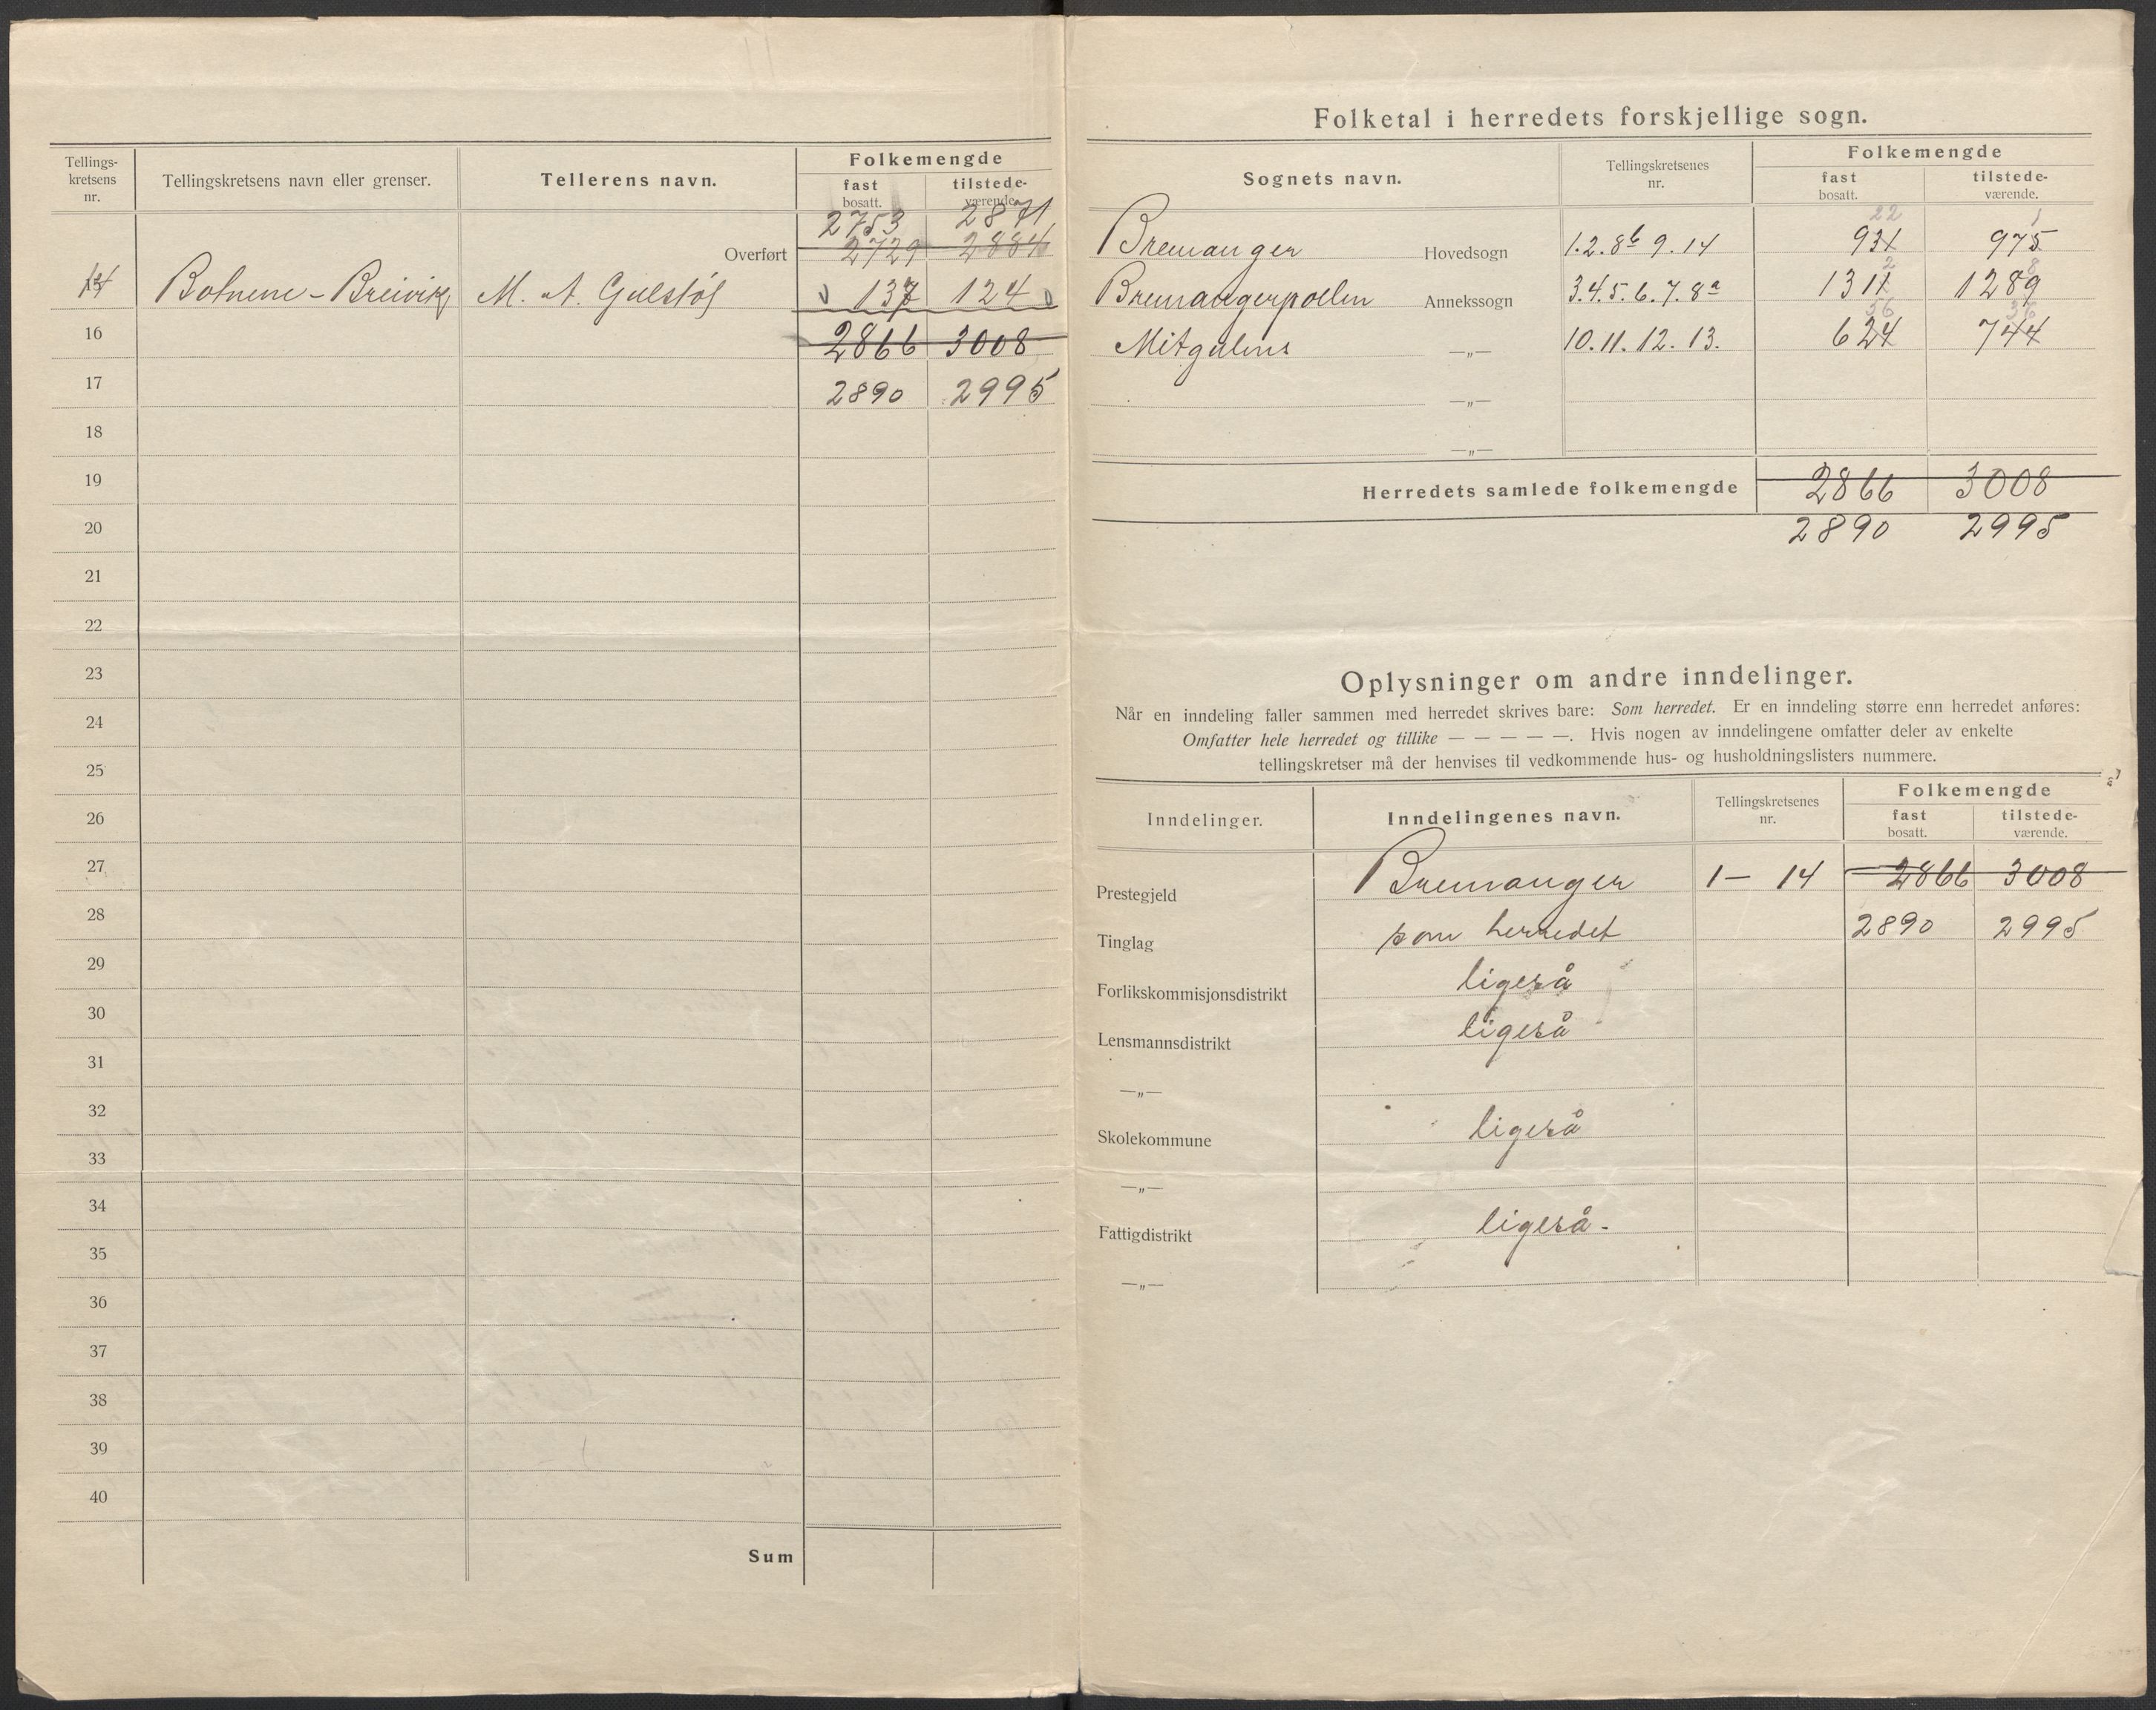 Tellings-
kretsens
nr.
Tellingskretsens navn eller grenser.
Tellerens navn.
Folkemengde
fast
bosatt.
tilstede-
værende.
2753 2871
Overført 2729 2884
14 Botnene - Breivik M. A. Gulestøl 137 124
16 2866 3008
17 2890 2995
18
19
20
21
22
23
24
25
26
27
28
29
30
31
32
33
34
35
36
37
38
39
40
Sum
Folketal i herredets forskjellige sogn.
Sognets navn.
Tellingskretsenes
nr.
Folkemengde
fast
bosatt.
tilstede-
værende.
22 1
Bremanger Hovedsogn 1.2.8b 9.14 931 975
2 8
Bremangerpollen Annekssogn 3.4.5.6.7.8a 1311 1289
56 36
Mitgulens —„— 10.11.12.13. 624 744
—„—
—„—
Herredets samlede folkemengde 2866 3008
2890 2995
Oplysninger om andre inndelinger.
Når en inndeling faller sammen med herredet skrives bare: Som herredet. Er en inndeling større enn herredet anføres:
Omfatter hele herredet og tillike — — — — —. Hvis nogen av inndelingene omfatter deler av enkelte
tellingskretser må der henvises til vedkommende hus- og husholdningslisters nummere.
Inndelinger.
Inndelingenes navn.
Tellingskretsenes
nr.
Folkemengde
fast
bosatt.
tilstede-
værende.
Prestegjeld Bremanger 1 — 14 2866 3008
Tinglag som herredet 2890 2995
Forlikskommisjonsdistrikt ligeså
Lensmannsdistrikt ligeså
—„—
Skolekommune ligeså
—„—
Fattigdistrikt ligeså -
—„—